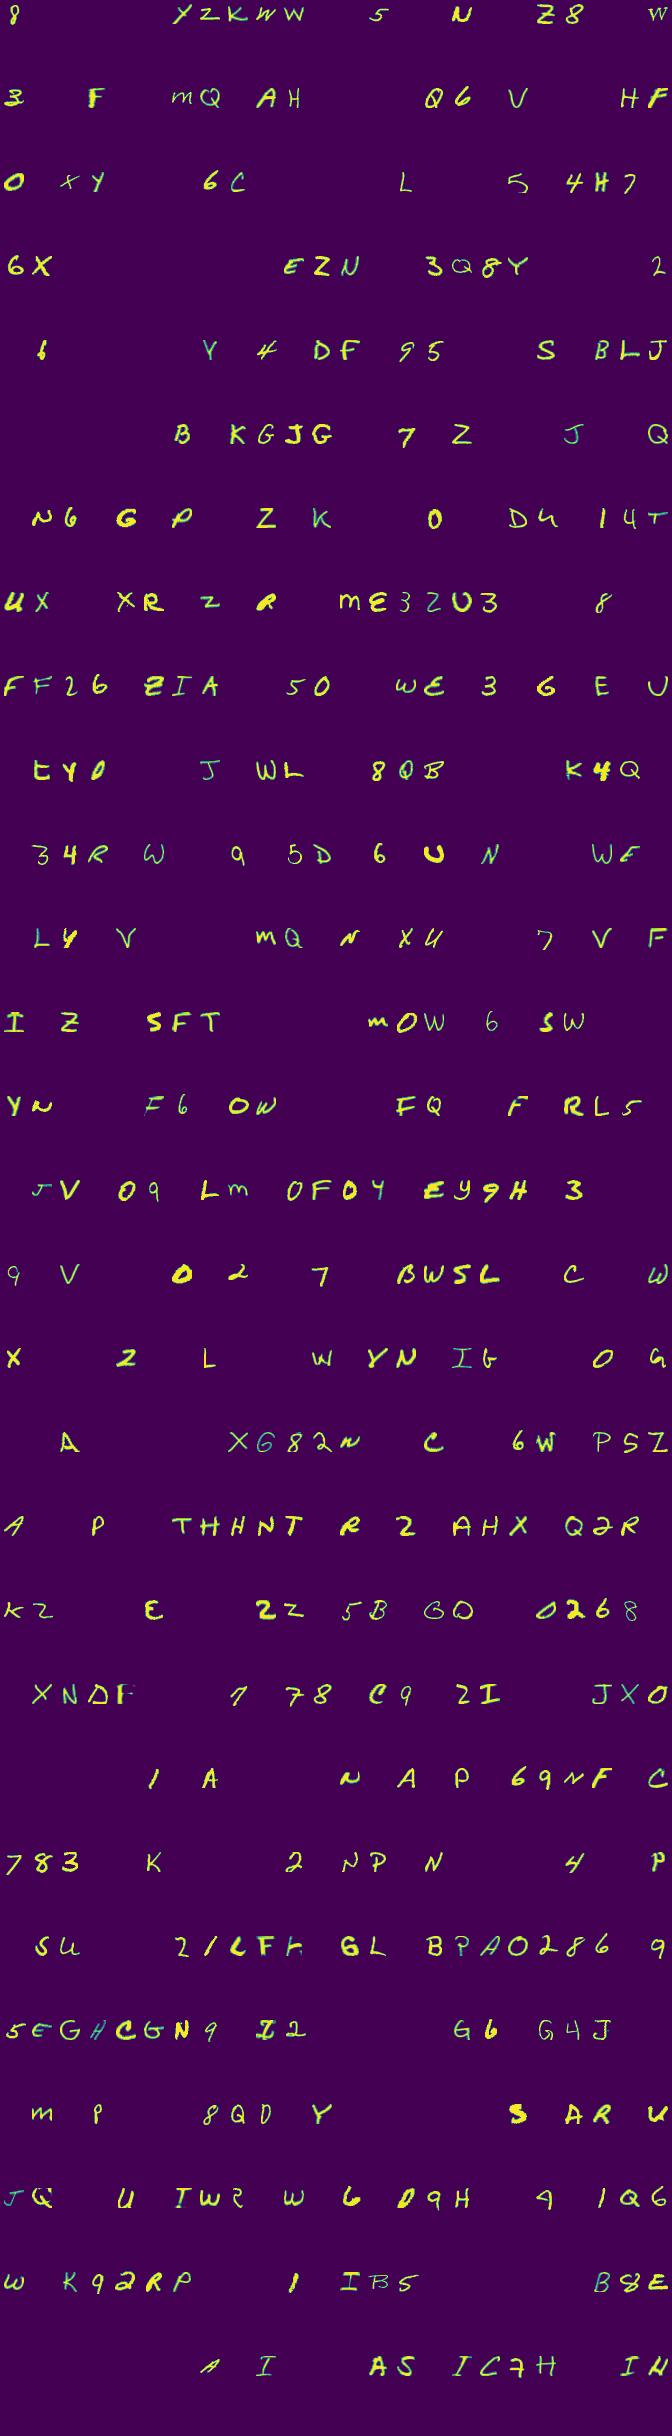 8 YZKWW 5 N Z8 W
3 F mQ AH Q6 V HF
0 XY 6C L 5 4H7
6X EZN 3Q8Y 2
6 Y 4 DF 95 S BLJ
B KGJG 7 Z J Q
N6 G P Z K 0 D4 14T
UX XR Z R mE32U3 8
FF26 ZIA 50 WE 3 G E U
EY0 J WL 8QB K4Q
34R W 9 5D 6 U N WF
LY V mQ N XU 7 V F
I Z SFT mOW 6 SW
YN F6 OW FQ F RL5
JV 09 Lm 0F0Y EY9H 3
9 V 0 2 7 BWSL C W
X Z L W YN IG 0 G
A XG82N C 6W PSZ
A P THHNT R 2 AHX Q2R
KZ E 2Z 5B GO 0268
XNDF 7 78 C9 2I JXO
1 A N A P 69NF C
783 K 2 NP N 4 P
SU 21LFK GL BPA0286 9
5EGHCGN9 I2 G6 G4J
m P 8QD Y S ARU
JQ U IW2 W 6 D9H 9 1Q6
W K92RP 1 IB5 B8E
A I AS IC7H IN